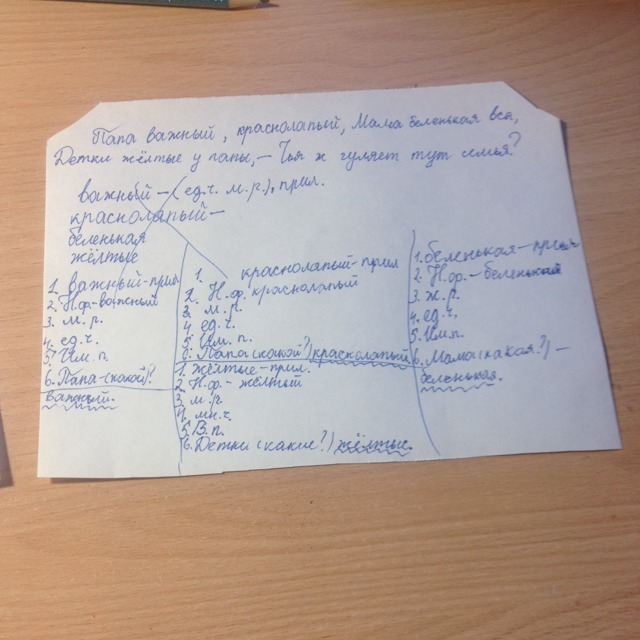 Папа важный, краснолапый, Мама беленькая вся,
Детки жёлтые у папы, — Чья ж гуляет тут семья?
важный — (ед.ч. м.р.), прил.
краснолапый —
беленькая
жёлтые
1. важный - прил
2. Н.ф - важный
3. м.р.
4. ед.ч.
5. Им.п.
6. Папа (какой)?
важный.
1. краснолапый - прил
2. Н.ф. краснолапый
3. м.р.
4. ед.ч.
5. Им.п.
6. Папа (какой?) краснолапый
1. жёлтые - прил.
2. Н.ф. - жёлтый
3. м.р.
4. мн.ч.
5. В.п.
6. Детки (какие?) жёлтые.
1. беленькая - прил
2. Н.ф. - беленькая
3. ж.р.
4. ед.ч.
5. Им.п.
6. Мама (какая?) —
беленькая.